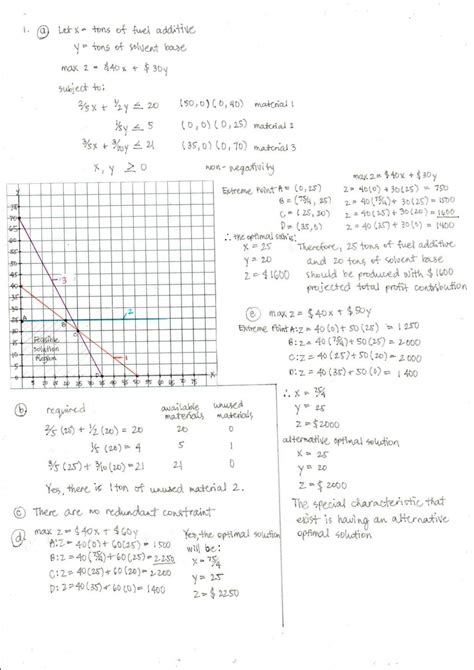 1. (a) Let x = tons of fuel additive
y = tons of solvent base
max z = $40x + $30y
subject to:
2/5x + 1/2y ≤ 20 (50,0)(0,40) material 1
1/5y ≤ 5 (0,0)(0,25) material 2
3/5x + 3/10y ≤ 21 (35,0)(0,70) material 3
x, y ≥ 0 non-negativity
max z = $40x + $30y
Extreme Point A = (0, 25) z = 40(0) + 30(25) = 750
B = (75/4, 25) z = 40(75/4) + 30(25) = 1500
C = (25, 20) z = 40(25) + 30(20) = 1600
D = (35, 0) z = 40(35) + 30(0) = 1400
∴ the optimal soln is:
x = 25
y = 20
z = $1600
Therefore, 25 tons of fuel additive
and 20 tons of solvent base
should be produced with $1600
projected total profit contribution
y
70
3
2
A
B
C
Feasible
solution
Region
1
D
x
(e) max z = $40x + $50y
Extreme Point A: z = 40(0) + 50(25) = 1250
B: z = 40(75/4) + 50(25) = 2000
C: z = 40(25) + 50(20) = 2000
D: z = 40(35) + 50(0) = 1400
∴ x = 75/4
y = 25
z = $2000
alternative optimal solution
x = 25
y = 20
z = $2000
The special characteristic that
exist is having an alternative
optimal solution
(b) required available materials unused materials
2/5(25) + 1/2(20) = 20 20 0
1/5(20) = 4 5 1
3/5(25) + 3/10(20) = 21 21 0
Yes, there is 1 ton of unused material 2.
(c) There are no redundant constraint
(d) max z = $40x + $60y
A: z = 40(0) + 60(25) = 1500
B: z = 40(75/4) + 60(25) = 2250
C: z = 40(25) + 60(20) = 2200
D: z = 40(35) + 60(0) = 1400
Yes, the optimal solution
will be:
x = 75/4
y = 25
z = $2250